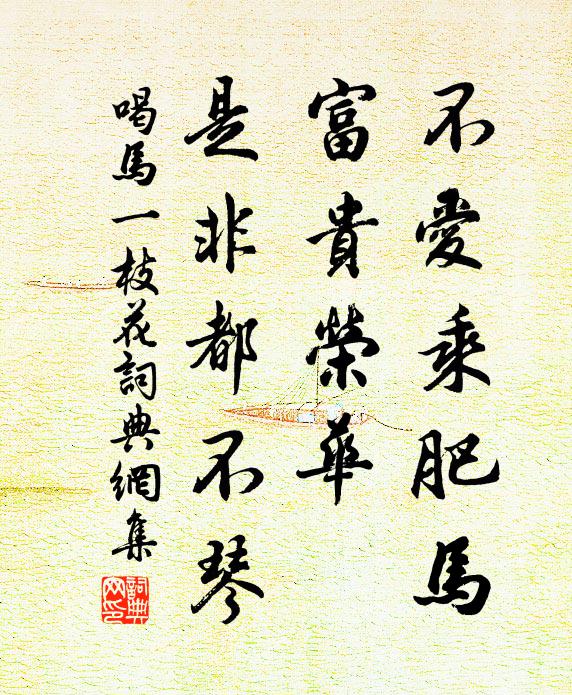 不愛乘肥馬
富貴榮華
是非都不琴
喝馬一枝花詞典網集
詞典
网印